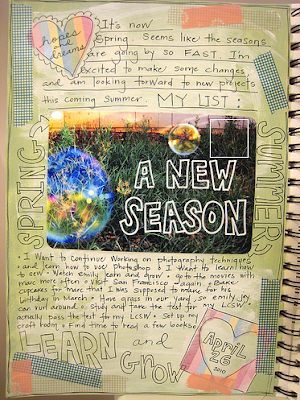 hopes
and
dreams
It's now
Spring. Seems like the seasons
are going by so FAST. I'm
excited to make some changes
and am looking forward to new projects
this coming Summer. MY LIST:
SPRING
SUMMER
A NEW
SEASON
• I want to continue working on photography techniques
and learn how to use photoshop • I want to learn how
to sew • Watch emily learn and grow • go to the movies with
marc more often • Visit San Francisco - again • Bake
cupcakes or more that I was supposed to make for his
birthday in March • Have grass in our yard, so emily jey
can run around • Study and take the test for my LCSW •
actually pass the test for my LCSW • Set up my
craft • Find time to read a few books
LEARN and
GROW
APRIL
26
2010